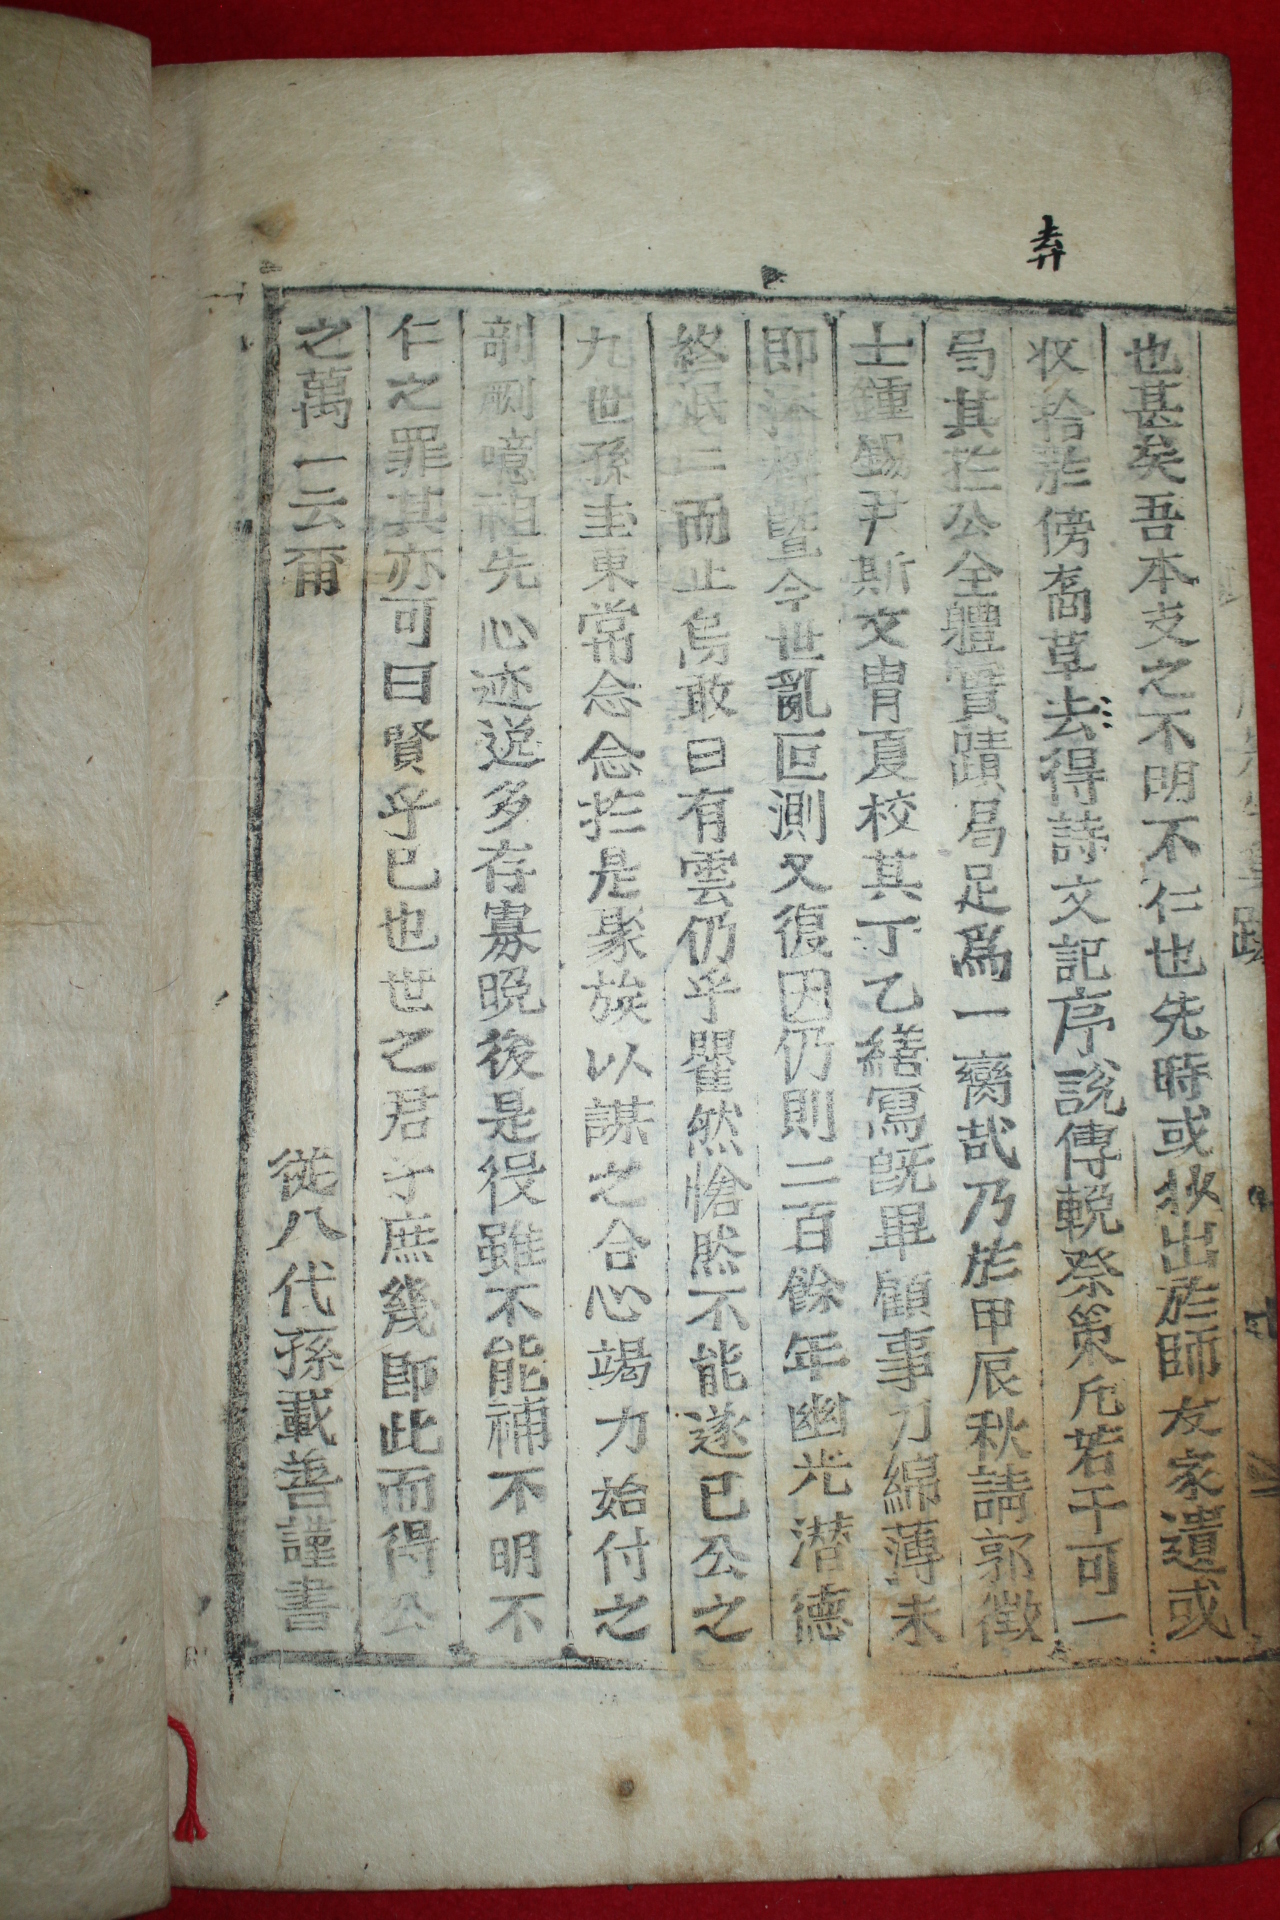 弆
也甚矣吾本支之不明不仁也先時或狄出於師友家遺或
收拾於傍裔草去得詩文記序說傳輓祭策凡若干可一
局其於公全體實蹟局足爲一臠哉乃於甲辰秋請郭徵
士鍾錫尹斯文胄夏校其丁乙繕寫旣畢顧事力綿薄未
即 暨今世亂叵測又復因仍則二百餘年幽光潜德
終泯二而止烏敢曰有雲仍乎瞿然愴然不能遂已公之
九世孫圭東常念念於是聚族以謀之合心竭力始付之
剞劂噫祖先心迹逸多存寡晩後是役雖不能補不明不
仁之罪其亦可曰賢乎已也世之君子庶幾卽此而得公
之萬一云爾
從八代孫載善謹書